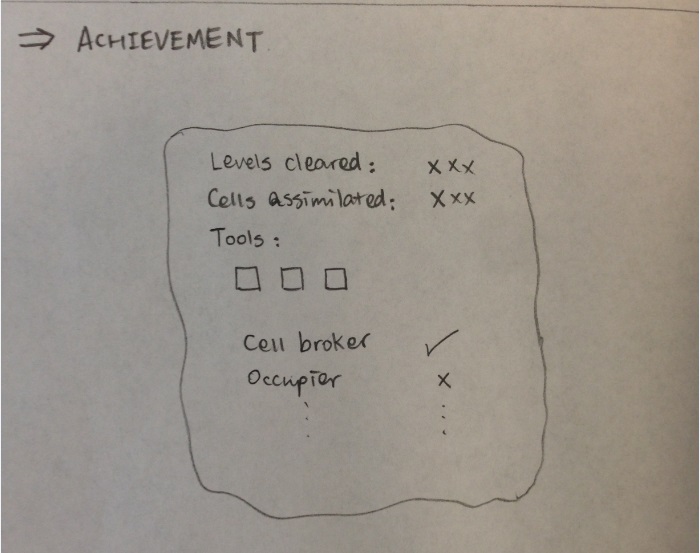 ⇒ ACHIEVEMENT
Levels cleared: xxx
Cells assimilated: xxx
Tools:
Cell broker ✓
Occupier x